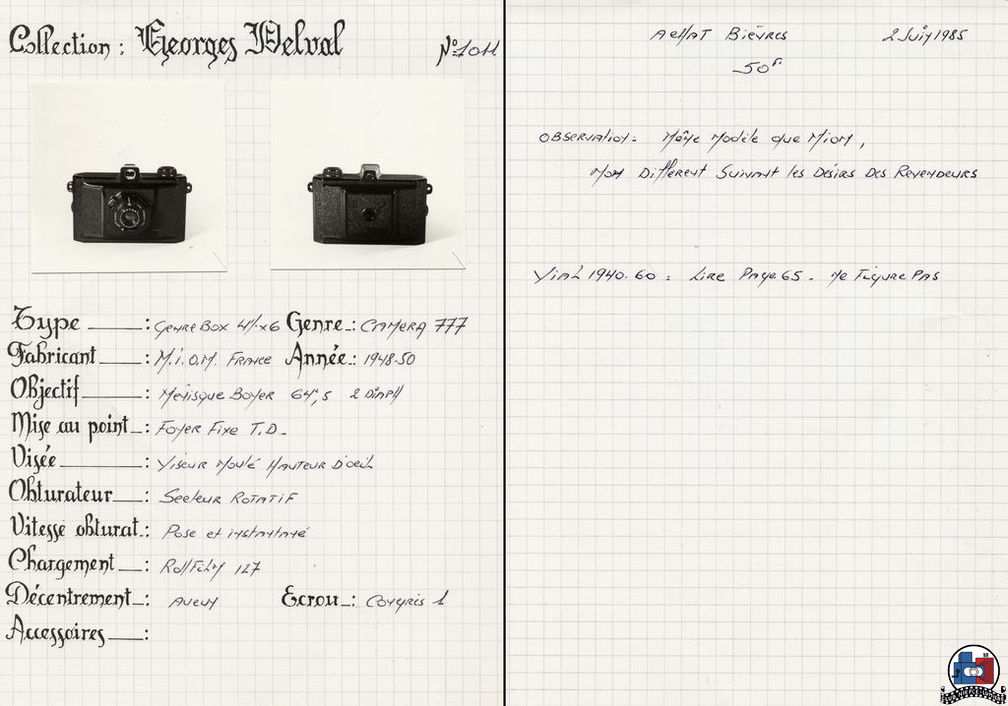 Collection : Georges Delval
N° 1011
Type : Genre Box 4½x6 Genre : CAMERA 777
Fabricant : M.i.O.M. France Année : 1948-50
Objectif : Menisque Boyer 64m,5 2 Diaph
Mise au point : Foyer Fixe T.D.
Visée : Viseur Moulé Hauteur D'oeil
Obturateur : Secteur Rotatif
Vitesse obturat. : Pose et instantané
Chargement : RollFilm 127
Décentrement : Aucun Ecrou : Congrès 1
Accessoires :
Achat Bièvres 2 Juin 1985
50F
Observation : Même Modèle que Miom,
Nom Différent Suivant les Désirs Des Revendeurs
Vial 1940.60 : Lire Page 65 - ne Figure Pas